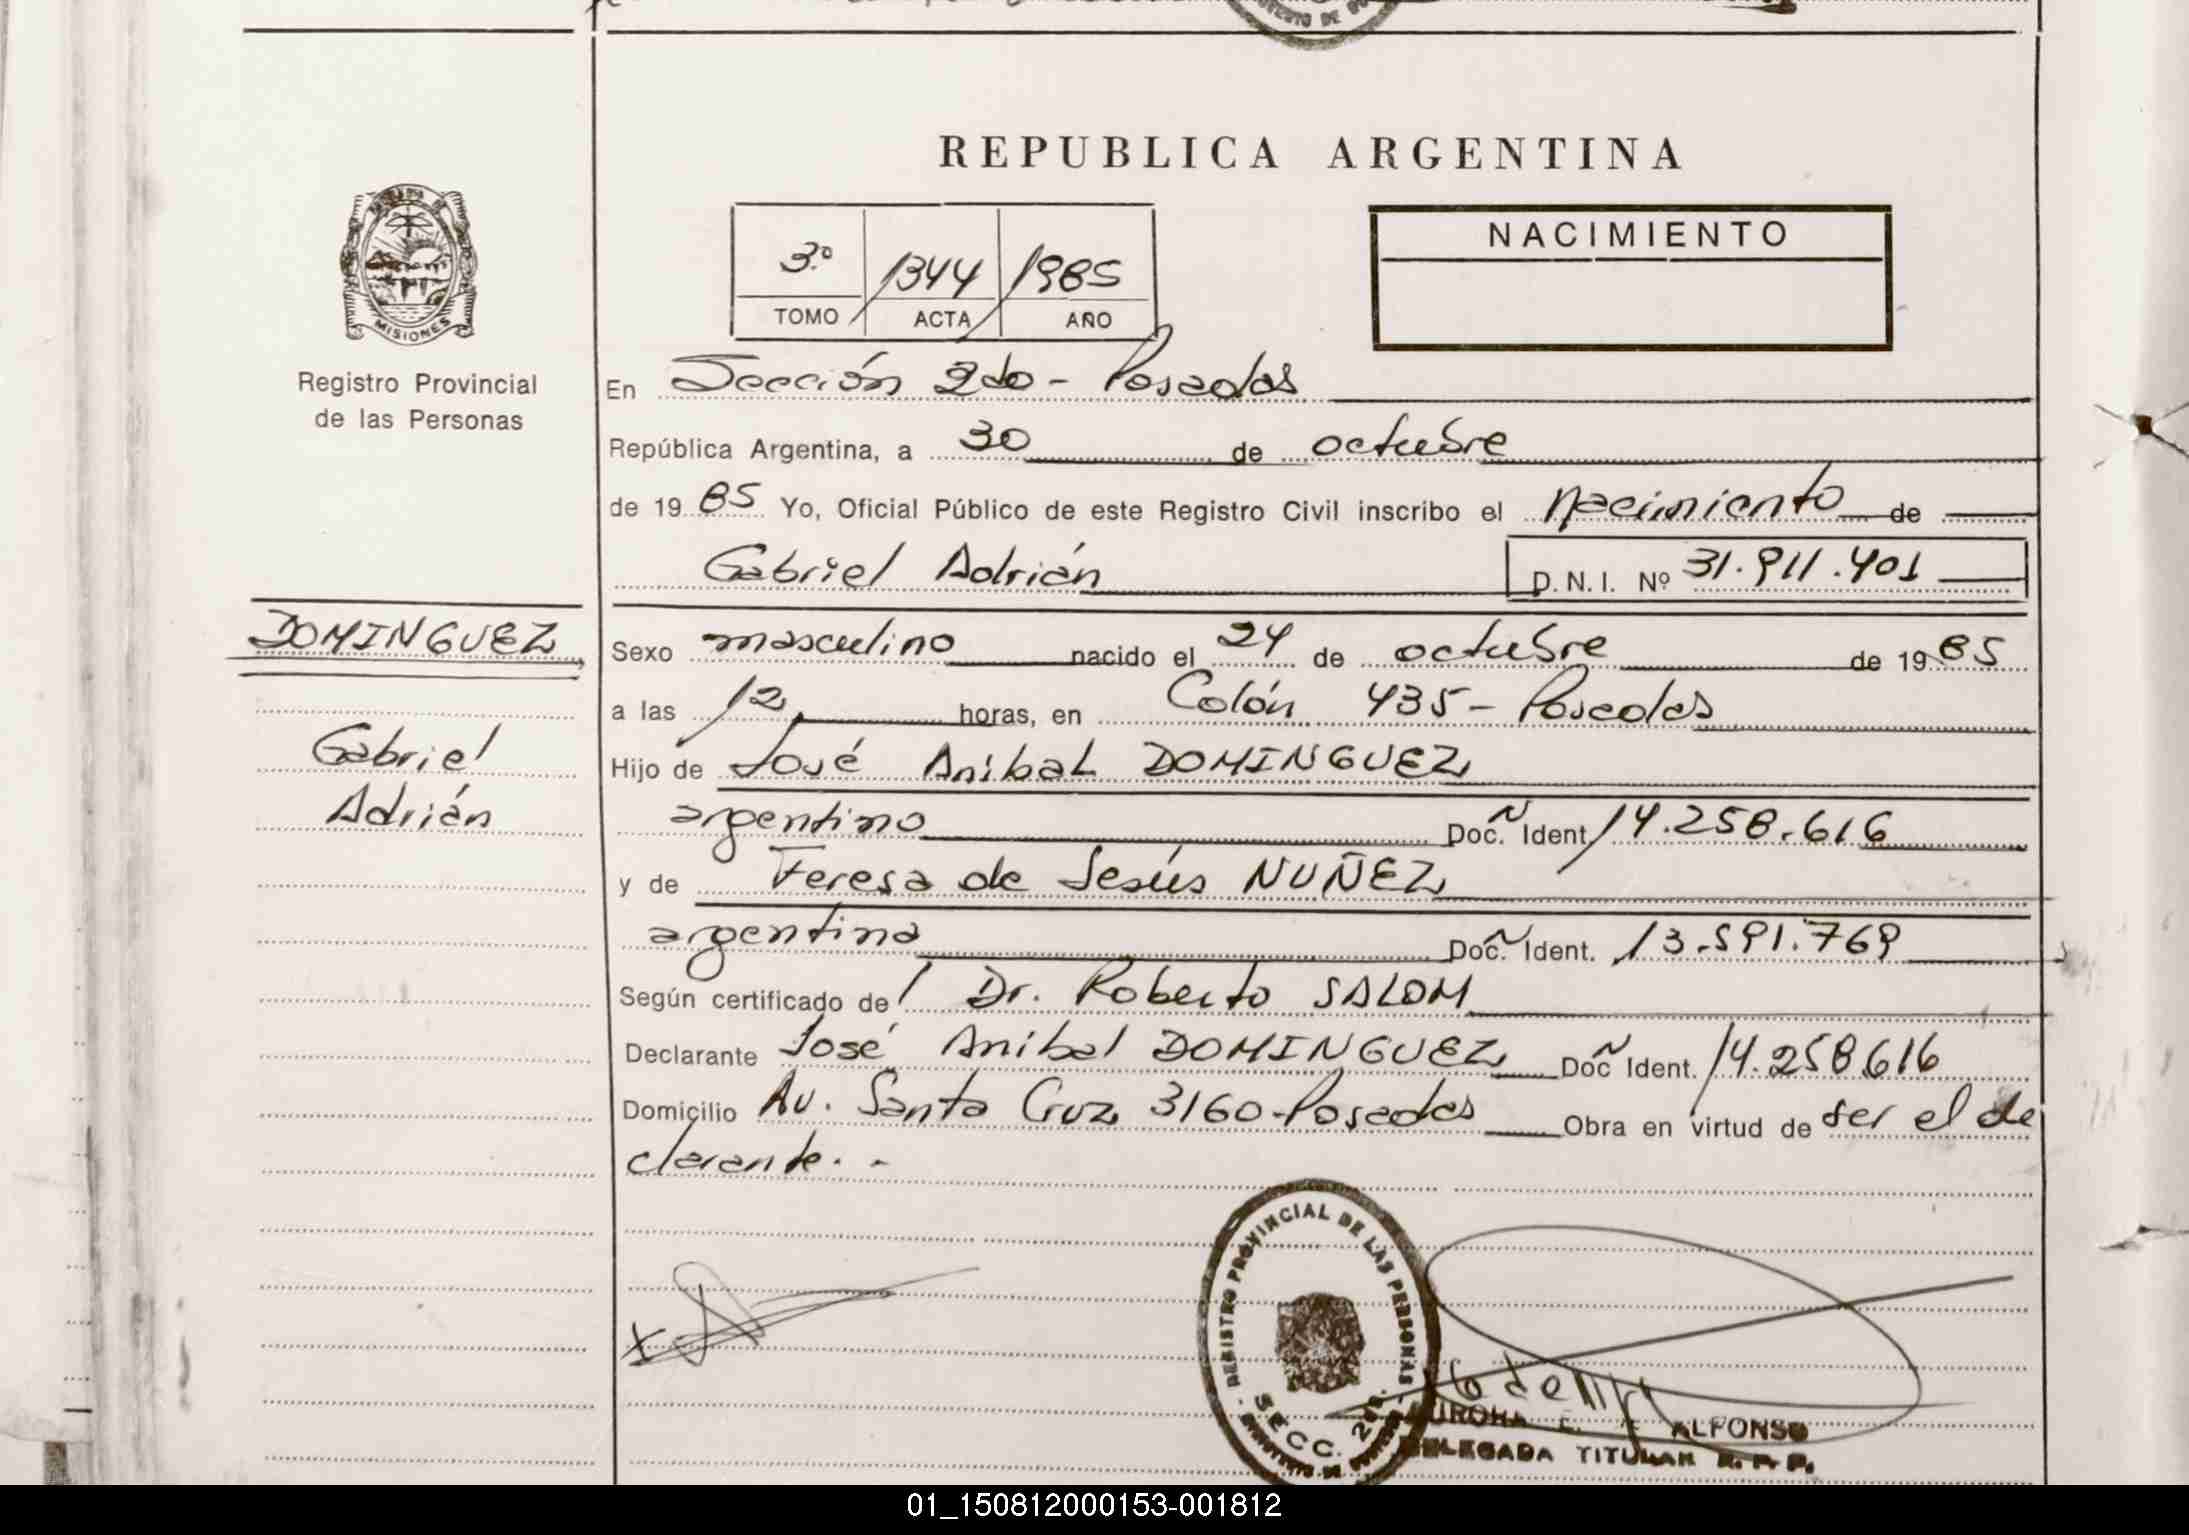 REPUBLICA ARGENTINA
MISIONES
Registro Provincial
de las Personas
3º 1344 1985
TOMO ACTA AÑO
NACIMIENTO
En Sección 2do - Posadas
República Argentina, a 30 de octubre
de 1985 Yo, Oficial Público de este Registro Civil inscribo el nacimiento de
Gabriel Adrián D.N.I. Nº 31.911.401
DOMINGUEZ
Gabriel
Adrián
Sexo masculino nacido el 24 de octubre de 1985
a las 12, horas, en Colón 435 - Posadas
Hijo de José Anibal DOMINGUEZ
argentino Doc. Ident. 14.258.616
y de Teresa de Jesús NUÑEZ
argentina Doc. Ident. 13.591.769
Según certificado del Dr. Roberto SALOM
Declarante José Anibal DOMINGUEZ Doc Ident. 14.258.616
Domicilio Av. Santa Cruz 3160 - Posadas Obra en virtud de ser el de
clarante. -
REGISTRO PROVINCIAL DE LAS PERSONAS
SECC. 2da.
ALFONSO
DELEGADA TITULAR R. P. P.
01_150812000153-001812